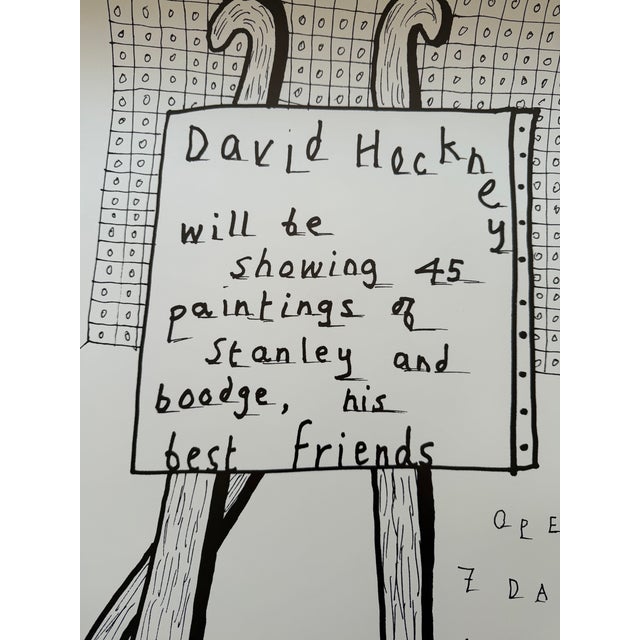 David Hockney
will be
showing 45
paintings of
Stanley and
boodge, his
best friends
OPE
7 DA